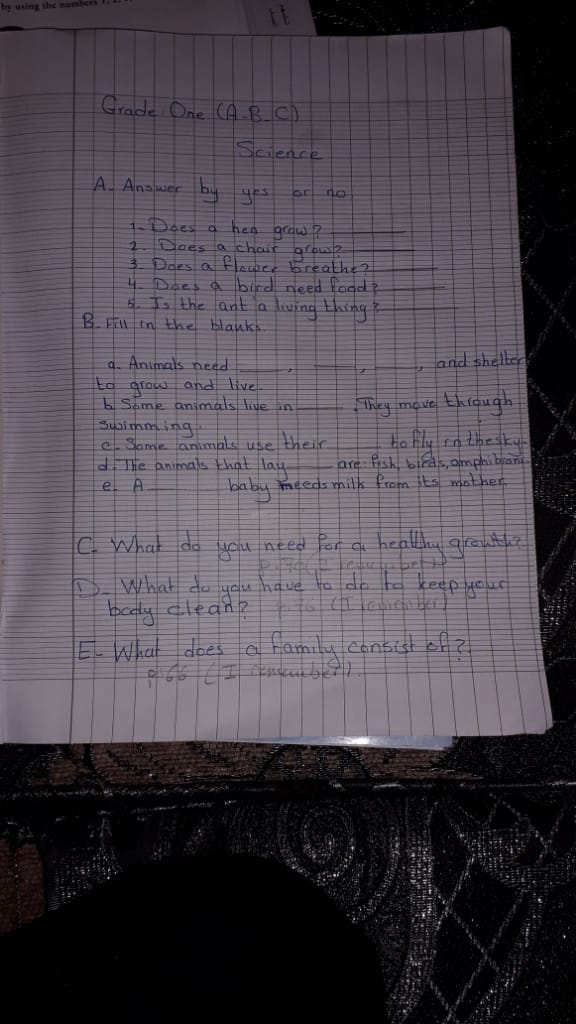 by using the numbers 1, 2,
tt
Grade One (A-B-C)
Science
A. Answer by yes or no
1- Does a hen grow?
2. Does a chair grow?
3. Does a flower breathe?
4. Does a bird need food?
5. Is the ant a living thing?
B. Fill in the blanks
a. Animals need ____, ____, ____, and shelter
to grow and live.
b. Some animals live in ____. They move through
swimming.
c. Some animals use their ____ to fly in the sky.
d. The animals that lay ____ are: fish, birds, amphibians.
e. A ____ baby needs milk from its mother.
C- What do you need for a healthy growth?
(I remember)
D- What do you have to do to keep your
body clean? (I remember)
E- What does a family consist of?
p.66 (I remember).